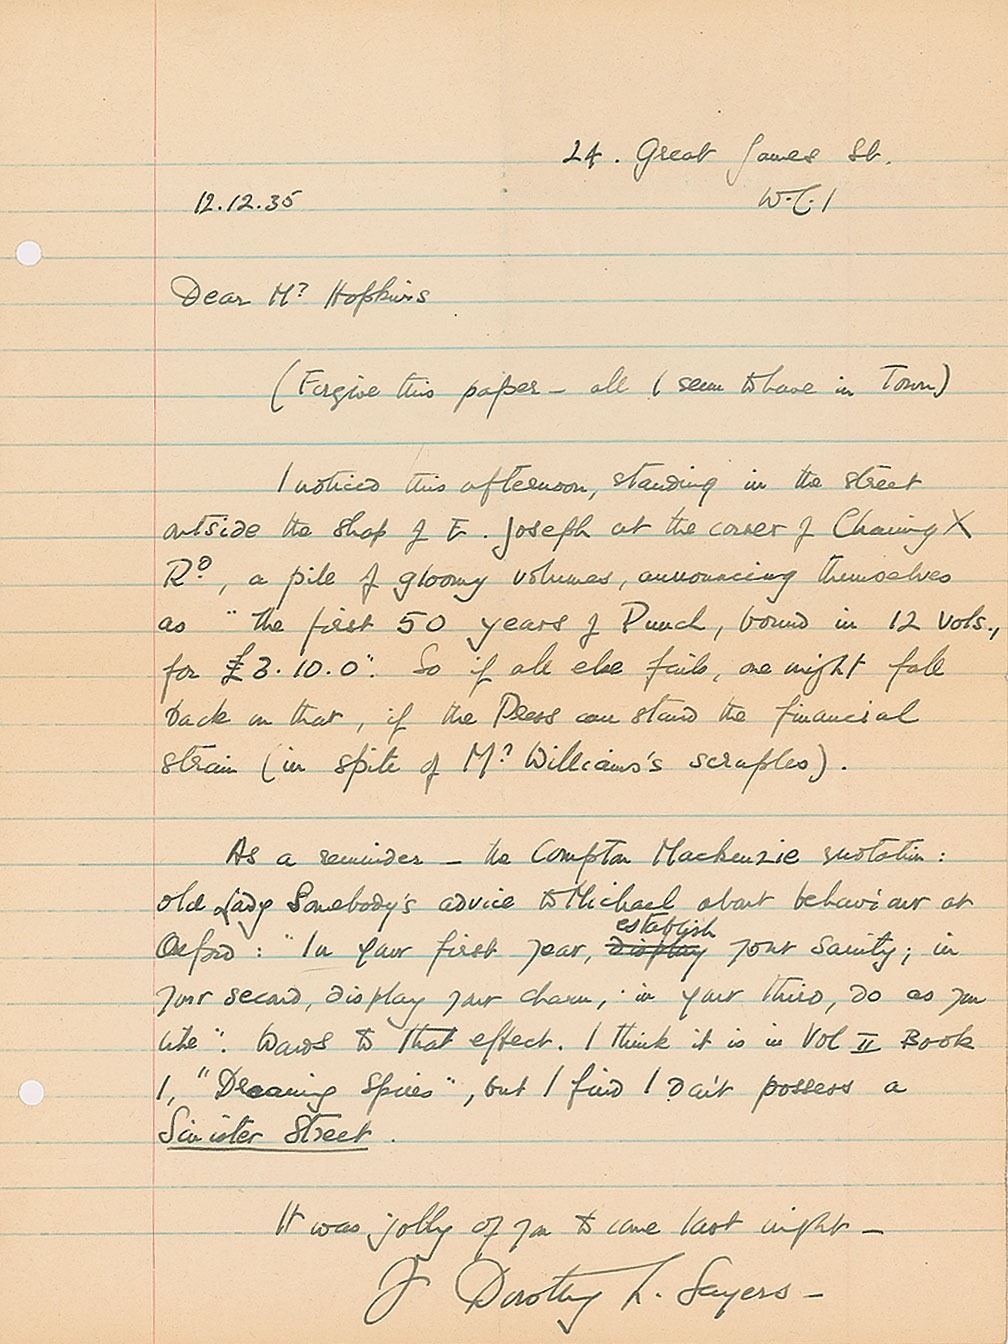 24. Great James St.
12.12.35
W.C.1
Dear Mr Hopkins
(Forgive this paper — all I seem to have in Town)
I noticed this afternoon, standing in the street
outside the shop of E. Joseph at the corner of Charing X
Rd., a pile of gloomy volumes, announcing themselves
as "the first 50 years of Punch, bound in 12 vols.,
for £3.10.0". So if all else fails, one might fall
back on that, if the Press can stand the financial
strain (in spite of Mr Williams's scruples).
As a reminder — the Compton Mackenzie quotation:
old Lady Somebody's advice to Michael about behaviour at
establish
Oxford: "In your first year, display your sanity; in
your second, display your charm; in your third, do as you
like". Words to that effect. I think it is in Vol II Book
1, "Dreaming Spires", but I find I don't possess a
Sinister Street.
It was jolly of you to come last night —
Dorothy L. Sayers —